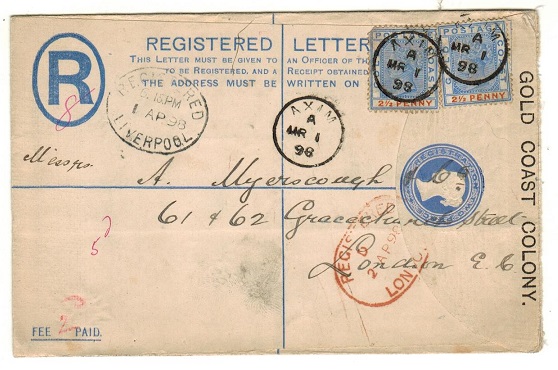 REGISTERED LETTER
THIS LETTER MUST BE GIVEN TO AN OFFICER OF TH
TO BE REGISTERED, AND A RECEIPT OBTAINED
THE ADDRESS MUST BE WRITTEN ON
R
POSTA
2½ PENNY
2½ PENNY
AXIM
A
MR 1
98
A
MR 1
98
AXIM
A
MR 1
98
REGISTERED
1 AP 98
LIVERPOOL
8
GOLD COAST COLONY.
Messrs
A. Myerscough
61 & 62 Gracechurch Street
London E.C.
REGIST
2 AP 98
LON
5
2
FEE PAID.